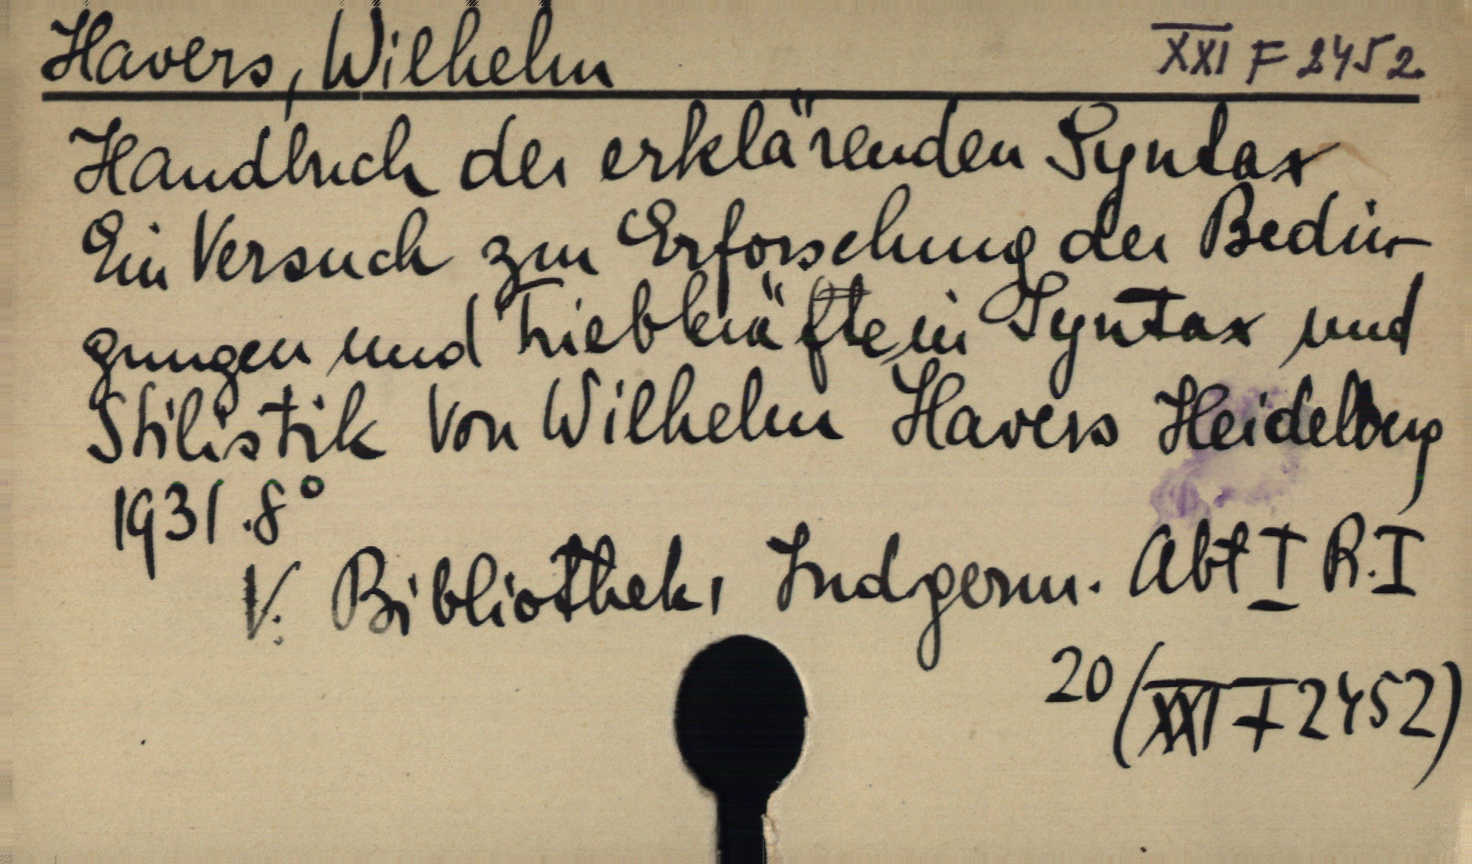 Havers, Wilhelm XXI F 2452
Handbuch der erklärenden Syntax
Ein Versuch zur Erforschung der Bedin-
gungen und Triebkräfte in Syntax und
Stilistik Von Wilhelm Havers Heidelberg
1931.8°
V. Bibliothek, Indgerm. Abt I R.I
20 (XXI F 2452)